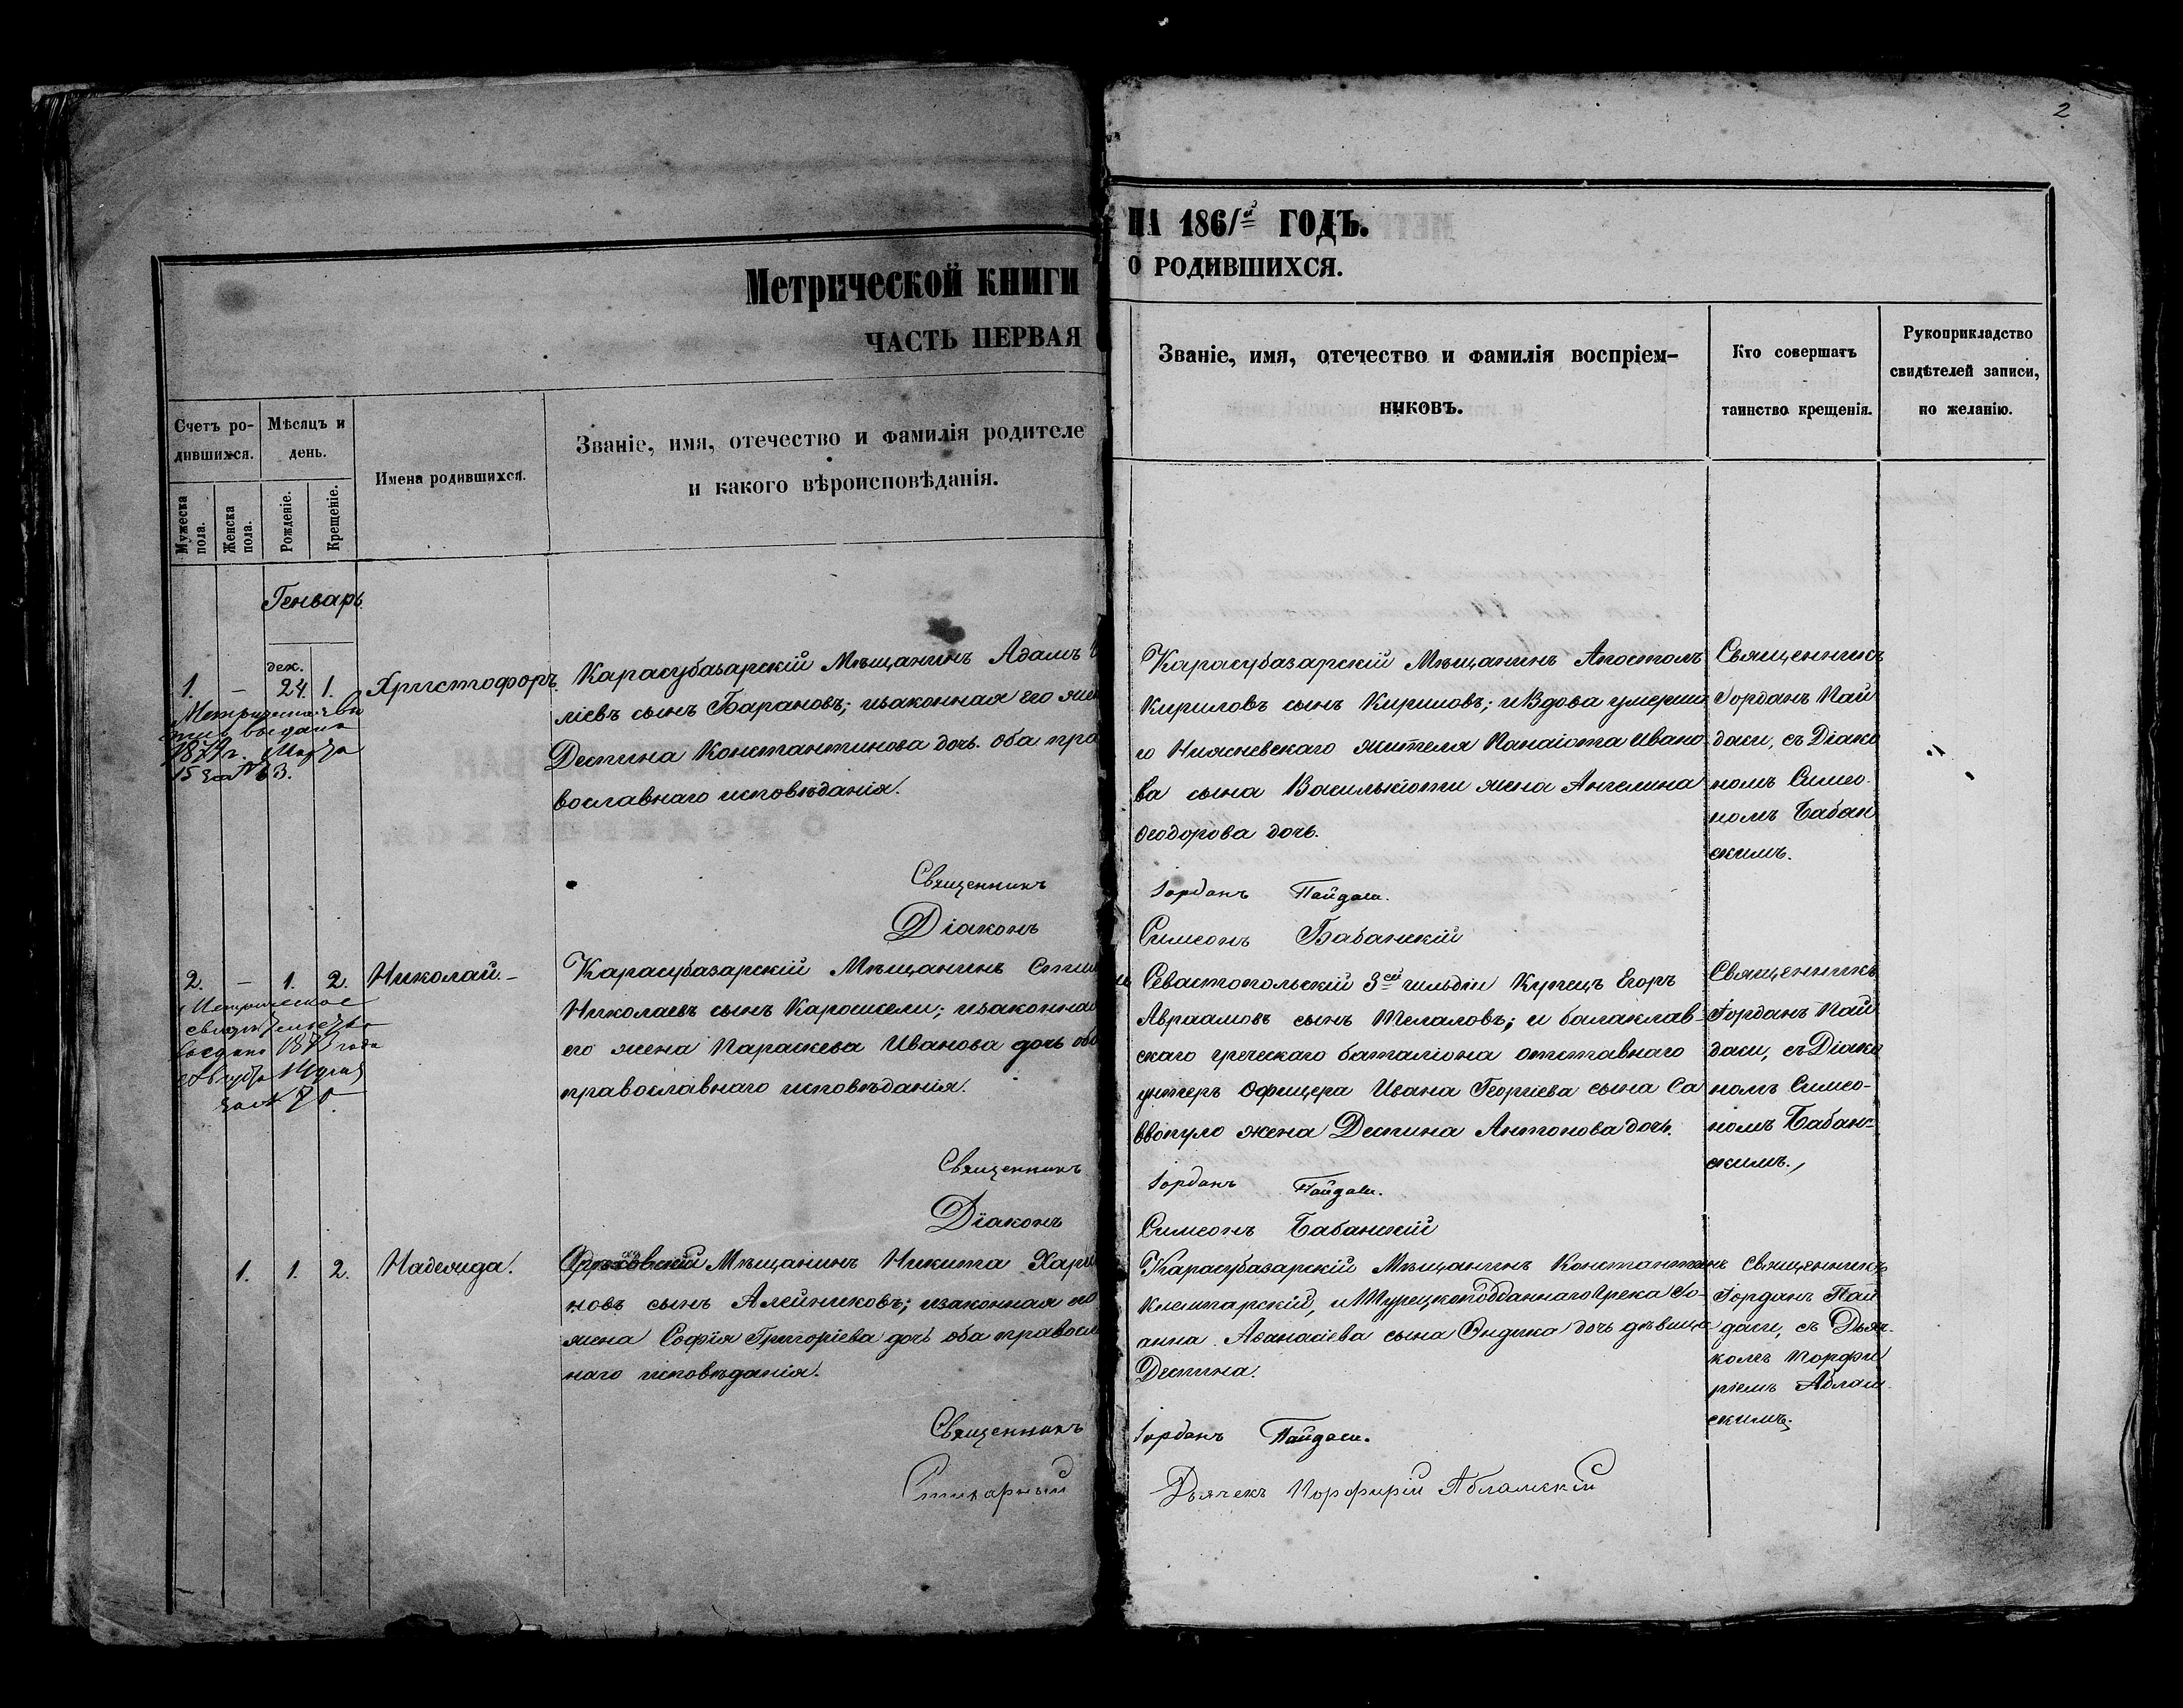 2
Метрической книги
ЧАСТЬ ПЕРВАЯ
НА 1861й ГОДЪ.
О РОДИВШИХСЯ.
Счетъ ро-
дившихся.
Мѣсяцъ и
день.
Мужеска
пола.
Женска
пола.
Рожденіе.
Крещеніе.
Имена родившихся.
Званіе, имя, отечество и фамилія родителе
и какого вѣроисповѣданія.
Званіе, имя, отечество и фамилія воспріем-
никовъ.
Кто совершатъ
таинство крещенія.
Рукоприкладство
свидѣтелей записи,
по желанію.
Генварь
дек.
1. – 24. 1. Христофоръ.
выдана
15 за № 13.
Карасубазарскій Мѣщанинъ Адамъ
ліевъ сынъ Барановъ; изаконная его жен
Деспина Константинова дочь. оба пра
вославнаго исповѣданія.
Священникъ
Діаконъ
Карасубазарскій Мѣщанинъ Апостолъ
Кириловъ сынъ Кириловъ; и Вдова умерша
го жителя Панаіота Ивано
ва сына жена Ангелина
Ѳеодорова дочь.
Іорданъ Пайдаси.
Симеонъ Бабанскій
Священникъ
Іорданъ Пай
даси, съ Діако
номъ Симео-
номъ Бабан
скимъ.
2. – 1. 2. Николай.–
Метрическое
свидѣтельство
выдано 1873 года
за № 70.
Карасубазарскій Мѣщанинъ
Николаевъ сынъ изаконная
его жена Параскева Иванова дочь оба
православнаго исповѣданія.
Священникъ
Діаконъ
Севастопольскій 3ей гильдіи Купецъ Егоръ
Авраамовъ сынъ Телаловъ; и балаклав-
скаго греческаго баталіона отставнаго
унтеръ Офицера Ивана Георгіева сына Са
ввопуло жена Деспина Антонова дочь.
Іорданъ Пайдаси.
Симеонъ Бабанскій
Священникъ
Іорданъ Пай
даси, съ Діако
номъ Симео-
номъ Бабан-
скимъ.
1. 1. 2. Надежда.
Мѣщанинъ Никита Хари
новъ сынъ Алейниковъ; изаконная его
жена Софія Григоріева дочь оба правосл
наго исповѣданія.
Священникъ
Карасубазарскій Мѣщанинъ Константинъ
и Турецкоподданнаго Грека Іо-
анна Аѳанасіева сына дочь дѣвица
Деспина.
Іорданъ Пайдаси.
Дьячекъ Порфирій Абламскій
Священникъ
Іорданъ Пай
даси, съ Дьяч-
комъ Порфи
ріемъ Аблам
скимъ.